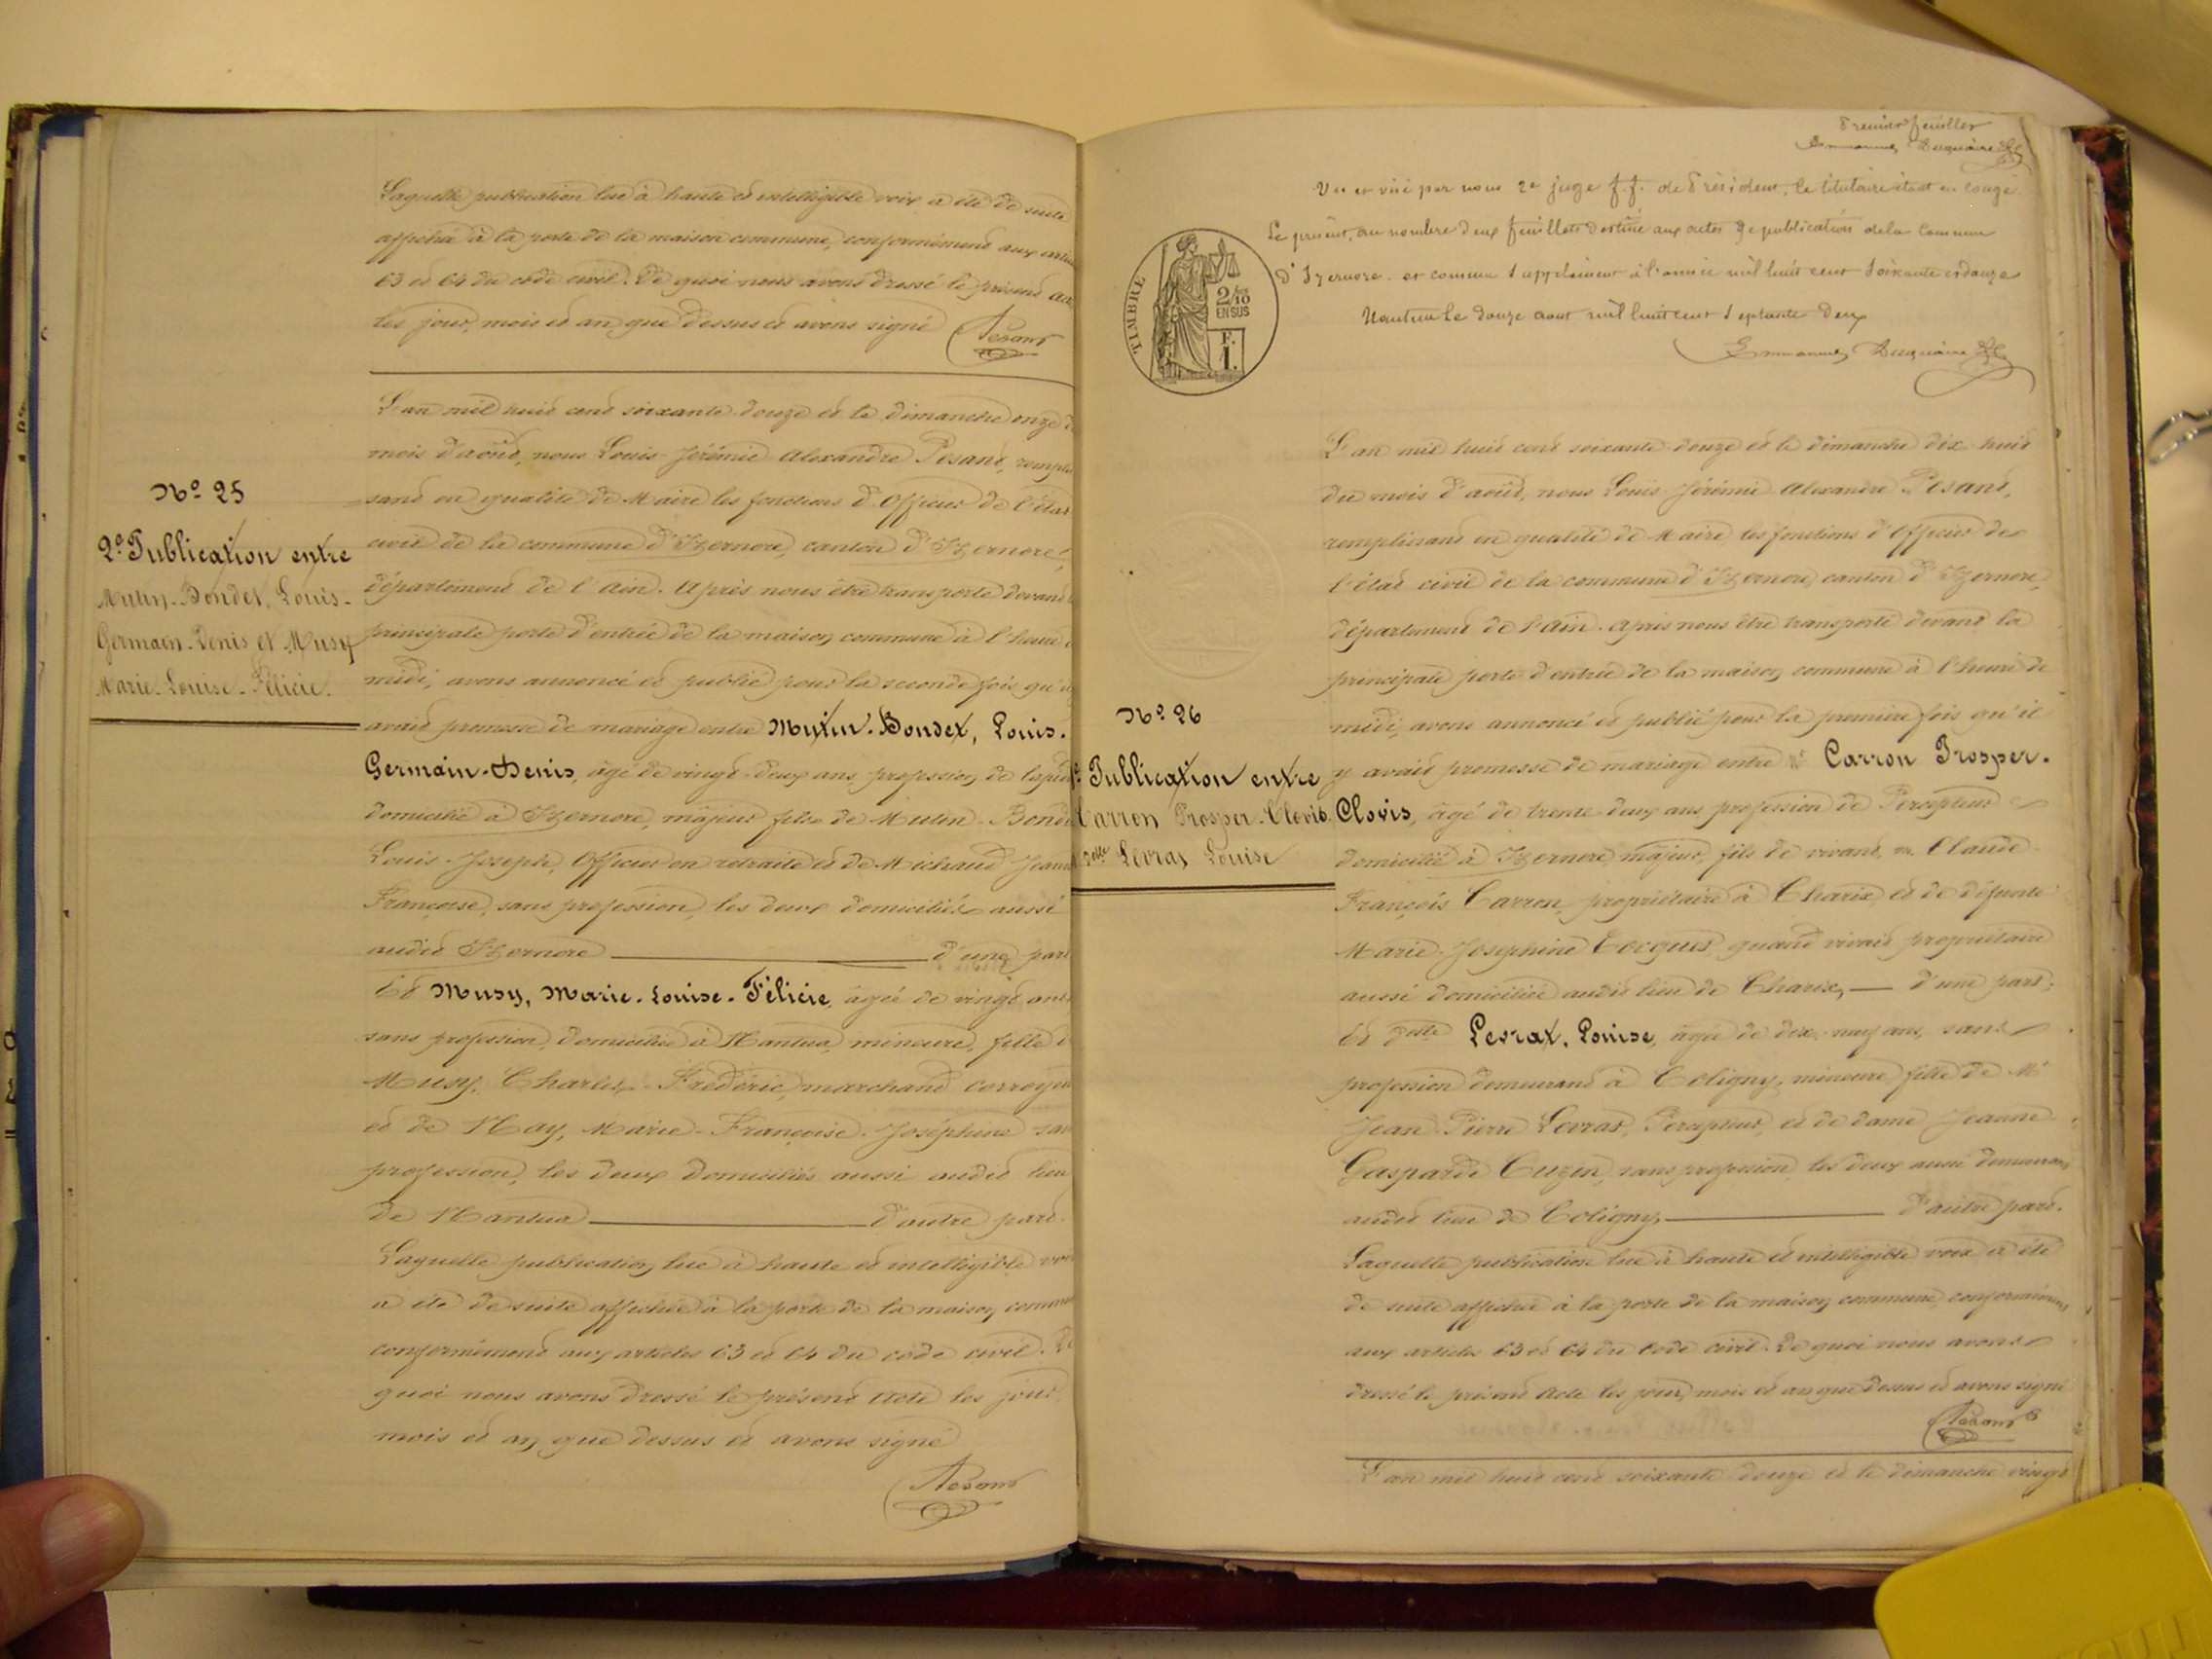 Laquelle publication lue à haute et intelligible voix a été de suite
affichée à la porte de la maison commune, conformément aux
63 et 64 du code civil. De quoi nous avons dressé le présent
les jour, mois et an que dessus et avons signé
Pesant
L'an mil huit cent soixante douze et le dimanche onze
mois d'août, nous Louis Jérémie Alexandre Pesant,
sant en qualité de Maire les fonctions d'Officier de l'état
civil de la commune d'Izernore, canton d'Izernore,
département de l'Ain. Après nous être transporté devant
principale porte d'entrée de la maison commune à l'heure
midi, avons annoncé et publié pour la seconde fois qu'
avait promesse de mariage entre Mutin-Bondet, Louis-
Germain-Denis, âgé de vingt-deux ans profession de
domicilié à Izernore, majeur fils de Mutin-
Louis-Joseph, Officier en retraite et de Michaud
Françoise, sans profession, les deux domiciliés aussi
audit Izernore d'une part
Et Musy, Marie-Louise-Félicie, âgée de vingt ans
sans profession, domiciliée à Nantua, mineure, fille
Musy, Charles-Frédéric, marchand
et de Nay, Marie-Françoise-Joséphine
profession, les deux domiciliés aussi audit lieu
de Nantua d'autre part.
Laquelle publication lue à haute et intelligible
a été de suite affichée à la porte de la maison
conformément aux articles 63 et 64 du code civil.
quoi nous avons dressé le présent acte les jour
mois et an que dessus et avons signé
Pesant
No. 25
2e. Publication entre
Mutin-Bondet, Louis-
Germain-Denis et Musy
Marie-Louise-Félicie.
Premier feuillet
Vu et visé par nous 2e juge f.f. de Président, le titulaire étant en congé.
Le présent, au nombre deux feuillets destiné aux actes de publication de la Commune
d'Izernore et comme supplément à l'année mil huit cent soixante et douze
Nantua le douze aout mil huit cent septante deux
TIMBRE
2/10
EN SUS
F.
1.
L'an mil huit cent soixante douze et le dimanche dix huit
du mois d'août, nous Louis Jérémie Alexandre Pesant,
remplissant en qualité de Maire les fonctions d'Officier de
l'état civil de la commune d'Izernore, canton d'Izernore,
département de l'Ain. Après nous être transporté devant la
principale porte d'entrée de la maison commune à l'heure de
midi, avons annoncé et publié pour la première fois qu'il
y avait promesse de mariage entre Mr Carron Prosper-
Clovis, âgé de trente-deux ans profession de Percepteur
domicilié à Izernore, majeur, fils de vivant m. Claude
François Carron, propriétaire à Charix, et de défunte
Marie-Josephine quand vivait propriétaire
aussi domiciliée audit lieu de Charix, d'une part;
Et Delle Levrat, Louise, âgée de dix-neuf ans, sans
profession demeurant à Coligny, mineure fille de Mr
Jean-Pierre Levrat, Percepteur, et de dame Jeanne
Gasparde Cuzin, sans profession, les deux aussi demeurant
audit lieu de Coligny, d'autre part.
Laquelle publication lue à haute et intelligible voix a été
de suite affichée à la porte de la maison commune, conformément
aux articles 63 et 64 du Code civil. De quoi nous avons
dressé le présent acte les jour, mois et an que dessus et avons signé
Pesant
L'an mil huit cent soixante douze et le dimanche vingt
No. 26
Publication entre
Carron Prosper-Clovis
Delle Levrat Louise